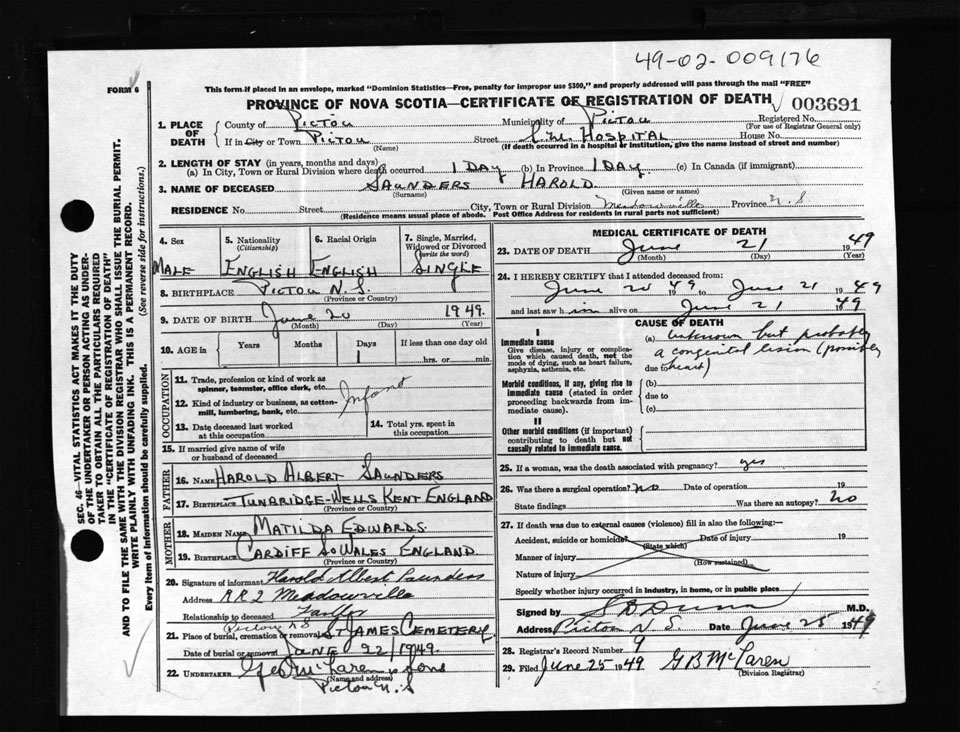 49-02-009176
FORM 6
This form if placed in an envelope, marked "Dominion Statistics—Free, penalty for improper use $300," and properly addressed will pass through the mail "FREE"
PROVINCE OF NOVA SCOTIA—CERTIFICATE OF REGISTRATION OF DEATH 003691
1. PLACE OF DEATH
County of Pictou Municipality of Pictou Registered No.
(For use of Registrar General only)
If in City or Town Pictou Street Hospital House No.
(Name) (If death occurred in a hospital or institution, give the name instead of street and number)
2. LENGTH OF STAY (in years, months and days)
(a) In City, Town or Rural Division where death occurred 1 Day (b) In Province 1 Day (c) In Canada (if immigrant)
3. NAME OF DECEASED Saunders Harold
(Surname) (Given name or names)
RESIDENCE No. Street City, Town or Rural Division Meadowville Province N.S
(Residence means usual place of abode. Post Office Address for residents in rural parts not sufficient)
4. Sex Male
5. Nationality (Citizenship) English
6. Racial Origin English
7. Single, Married, Widowed or Divorced (write the word) Single
8. BIRTHPLACE Pictou N.S.
(Province or Country)
9. DATE OF BIRTH June 20 1949
(Month) (Day) (Year)
10. AGE in Years Months Days 1 If less than one day old
hrs. or min.
OCCUPATION
11. Trade, profession or kind of work as spinner, teamster, office clerk, etc.
12. Kind of industry or business, as cotton-mill, lumbering, bank, etc.
Infant
13. Date deceased last worked at this occupation
14. Total yrs. spent in this occupation
15. If married give name of wife or husband of deceased
FATHER
16. NAME Harold Albert Saunders
17. BIRTHPLACE Tunbridge-Wells Kent England
MOTHER
18. MAIDEN NAME Matilda Edwards
19. BIRTHPLACE Cardiff So Wales England
20. Signature of informant Harold Albert Saunders
Address RR 2 Meadowville
Relationship to deceased Father
Pictou N S
21. Place of burial, cremation or removal St James Cemetery
Date of burial or removal June 22/1949.
22. UNDERTAKER Geo McLaren & Sons
(Name and address)
Pictou N.S
MEDICAL CERTIFICATE OF DEATH
23. DATE OF DEATH June 21 1949
(Month) (Day) (Year)
24. I HEREBY CERTIFY that I attended deceased from:
June 20 49 to June 21 1949
and last saw him alive on June 21 1949
CAUSE OF DEATH
I
Immediate cause
Give disease, injury or complication which caused death, not the mode of dying, such as heart failure, asphyxia, asthenia, etc.
(a) unknown but probably
a congenital lesion (possibly
due to heart)
Morbid conditions, if any, giving rise to immediate cause (stated in order proceeding backwards from immediate cause).
(b)
due to
(c)
II
Other morbid conditions (if important) contributing to death but not causally related to immediate cause.
25. If a woman, was the death associated with pregnancy? yes
26. Was there a surgical operation? no Date of operation 19
State findings Was there an autopsy? No
27. If death was due to external causes (violence) fill in also the following:—
Accident, suicide or homicide? Date of injury 19
(State which)
Manner of injury
(How sustained)
Nature of injury
Specify whether injury occurred in industry, in home, or in public place
Signed by S B Dunn M.D.
Address Pictou N.S. Date June 25 1949
28. Registrar's Record Number 9
29. Filed June 25 1949 G B McLaren
(Division Registrar)
SEC. 46—VITAL STATISTICS ACT MAKES IT THE DUTY
OF THE UNDERTAKER OR PERSON ACTING AS UNDER-
TAKER TO OBTAIN ALL THE PARTICULARS REQUIRED
IN THE "CERTIFICATE OF REGISTRATION OF DEATH"
AND TO FILE THE SAME WITH THE DIVISION REGISTRAR WHO SHALL ISSUE THE BURIAL PERMIT.
WRITE PLAINLY WITH UNFADING INK. THIS IS A PERMANENT RECORD.
Every item of information should be carefully supplied. (See reverse side for instructions.)